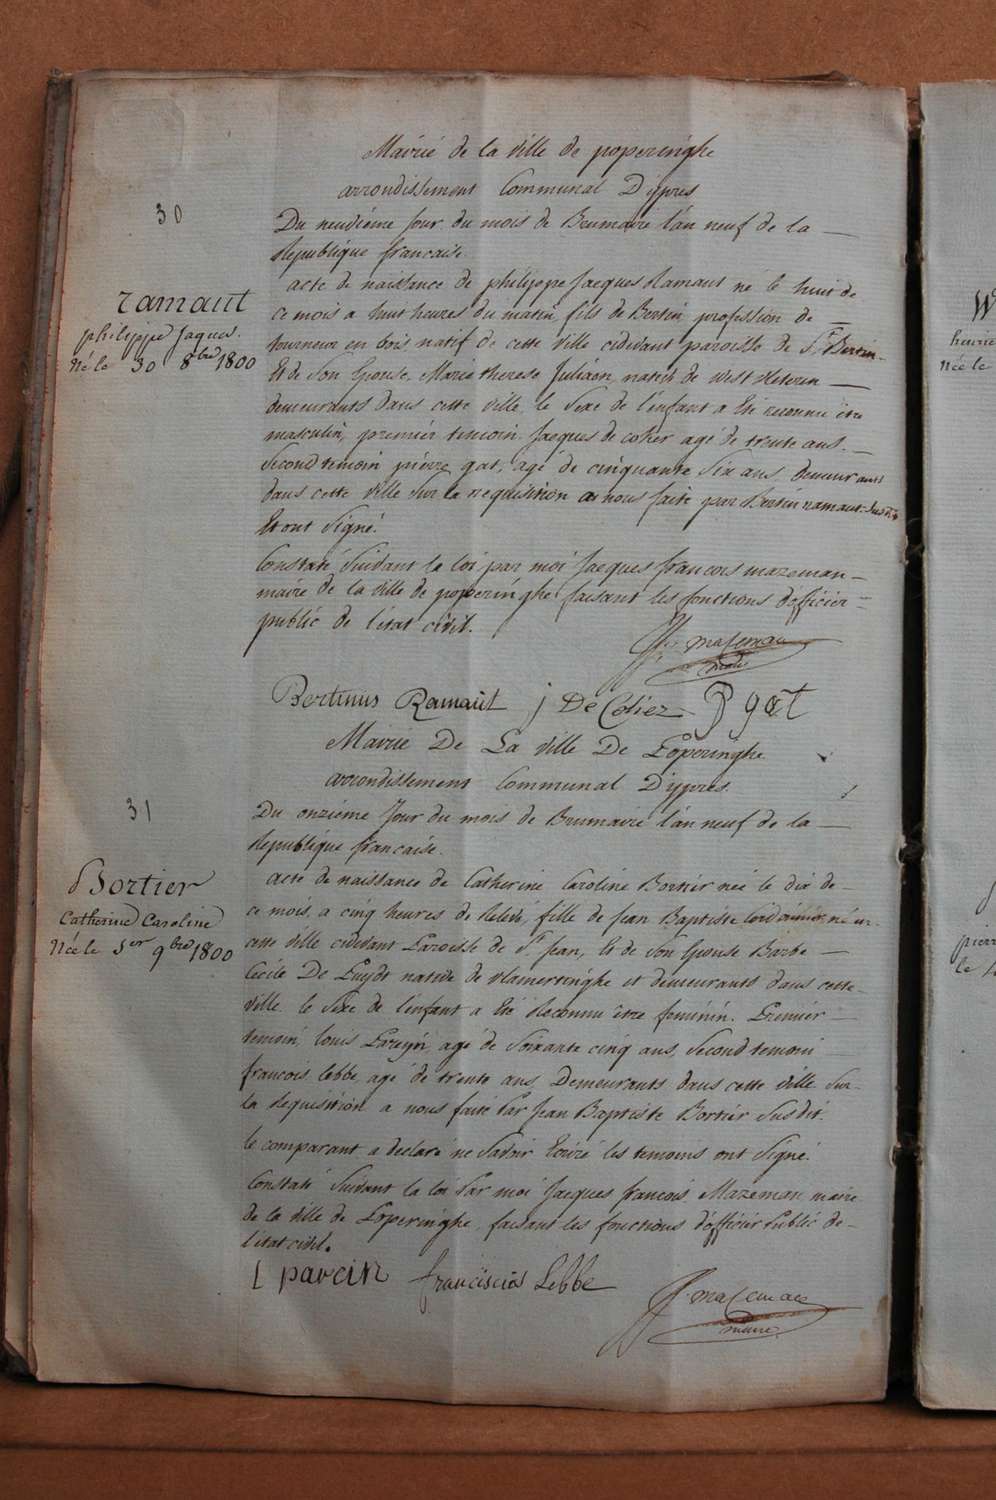 Mairié de la ville de poperinghe
arrondissement Communal D'ypres
30
Du neuvième Jour du mois de Brumaire l'an neuf de la
République francaise.
acte de naissance de philippe Jacques Ramaut né le huit de
ramaut
ce mois a huit heures du matin, fils de Bertin profession de
philippe Jaques.
tourneur en bois natif de cette ville cidevant paroisse de St. Bertin
Né le 30 8bre 1800
Et de Son Epouse, Marie therese Juliaen, native de West vleteren
demeurants dans cette ville, le Sexe de l'enfant a Eté reconnu être
masculin, premier temoin Jacques de coher agé de trente ans.
Second temoin pierre gat, agé de cinquante Six ans demeurants
dans cette ville Sur la requisition a nous faite par Bertin ramaut Susdit
Et ont Signé.
Constaté Suivant la loi par moi Jacques francois mazeman
maire de la ville de poperinghe faisant les fonctions d'officier
public de l'état civil.
J.f. Mazeman
maire
Bertinus Ramaüt j De Coher P gat
Mairie De La ville De Poperinghe
arrondissement Communal D'ypres.
31
Du onzième Jour du mois de Brumaire l'an neuf de la
République francaise.
acte de naissance de Catherine Caroline Bortier née le dix de
Bortier
ce mois, a cinq heures de Relevé, fille de Jean Baptiste Cordonnier, né en
Catherine Caroline
cette ville cidevant Paroisse de St. Jean, Et de Son Epouse Barbe
Née le 1er 9bre 1800
Cecile De Puydt native de vlamertinghe et demeurants dans cette
ville. le Sexe de l'enfant a Eté Reconnu être feminin. Premier
temoin, louis Pareyn, agé de Soixante cinq ans, Second temoin
francois lebbe, agé de trente ans, Demeurants dans cette ville Sur
la Requisition a nous faite Par Jean Baptiste Bortier Susdit.
le comparant a declaré ne Savoir Ecrire les temoins ont Signé.
Constaté Suivant la loi Par moi Jacques francois Mazeman maire
de la ville de Poperinghe, faisant les fonctions d'officier Public de
l'état civil.
L parein franciscus Lebbe
J.f. Mazeman
maire